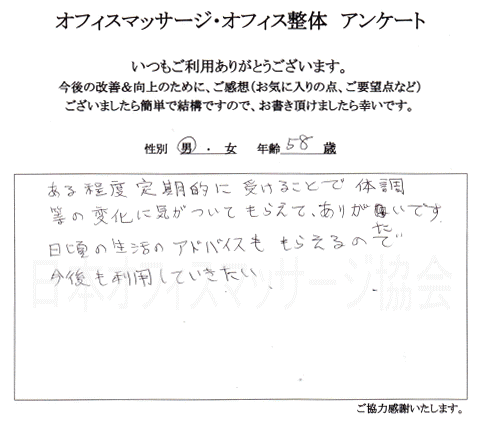 オフィスマッサージ・オフィス整体 アンケート
いつもご利用ありがとうございます。
今後の改善&向上のために、ご感想(お気に入りの点、ご要望点など)
ございましたら簡単で結構ですので、お書き頂けましたら幸いです。
性別 男 ・ 女 年齢 58 歳
ある程度定期的に受けることで体調
等の変化に気がついてもらえて、ありがたいです
日頃の生活のアドバイスももらえるので
今後も利用していきたい
日本オフィスマッサージ協会
ご協力感謝いたします。